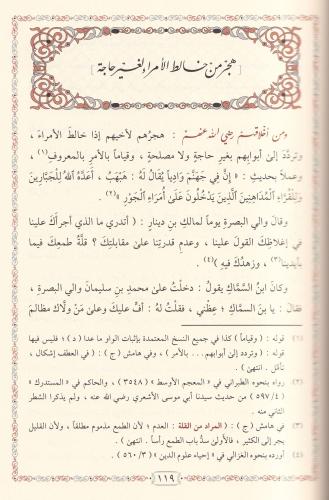 [ هجر من خالط الأمراء لغير حاجة ]
ومن أخلاقهم رضي الله عنهم : هجرهم لأخيهم إذا خالط الأمراء ،
وتردَّد إلىٰ أبوابهم بغير حاجةٍ ولا مصلحةٍ ، وقياماً بالأمر بالمعروف(١) ،
وعملاً بحديث : « إِنَّ فِي جَهَنَّمَ وَادِياً يُقَالُ لَهُ : هَبْهَبُ ، أَعَدَّهُ ٱللهُ لِلْجَبَّارِينَ
وَلِلْقُرَّاءِ ٱلْمُدَاهِنِينَ ٱلَّذِينَ يَدْخُلُونَ عَلَىٰ أُمَرَاءِ ٱلْجَوْرِ »(٢) .
وقال والي البصرةِ يوماً لمالكِ بن دينار : ( أتدري ما الذي أجرأك علينا
في إغلاظِك القولَ علينا ، وعدم قدرتِنا علىٰ مقابلتِك ؟ قلَّةُ طمعِك فيما
بأيدينا(٣) ، وزهدُك فيه )(٤) .
وكانَ ابنُ السَّمَّاكِ يقولُ : دخلتُ علىٰ محمدِ بنِ سليمانَ والي البصرةِ ،
فقال : يا بنَ السماكِ ؛ عِظْني ، فقلتُ لهُ : أفٍّ عليكَ وعلىٰ مَنْ ولَّاك مظالمَ
(١) قوله : ( وقياماً ) كذا في جميع النسخ المعتمدة بإثبات الواو ما عدا ( د ) ؛ فليس فيها
قوله : ( وتردد إلىٰ أبوابهم... بالأمر ) ، وفي هامش ( ج ) : ( في العطف إشكال ،
تأمَّل . انتهىٰ ) .
(٢) رواه بنحوه الطبراني في « المعجم الأوسط » ( ٣٥٤٨ ) ، والحاكم في « المستدرك »
( ٥٩٧/٤ ) من حديث سيدنا أبي موسى الأشعري رضي الله عنه ، ولم يذكرا الشطر
الثاني منه .
(٣) في هامش ( ج ) : ( المراد من القلة : العدم ؛ لأن الطمع مذموم مطلقاً ، ولأن القليل
يجر إلى الكثير ، فالأولىٰ سدُّ باب الطمع رأساً . انتهىٰ ) .
(٤) أورده بنحوه الغزالي في « إحياء علوم الدين » ( ٥٦٠/٣ ) .
١١٩